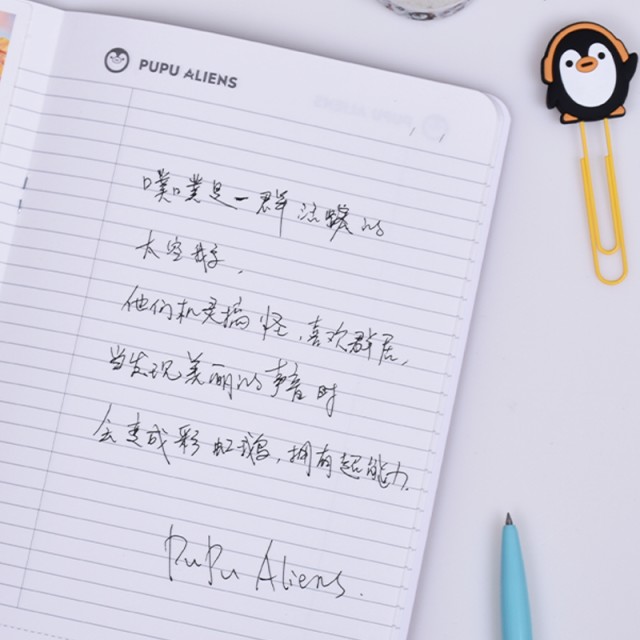 PUPU ALIENS
噗噗是一群流浪的
太空鹅子，
他们机灵搞怪，喜欢群居，
当发现美丽的声音时
会变成彩虹鹅，拥有超能力.
PuPu Aliens.